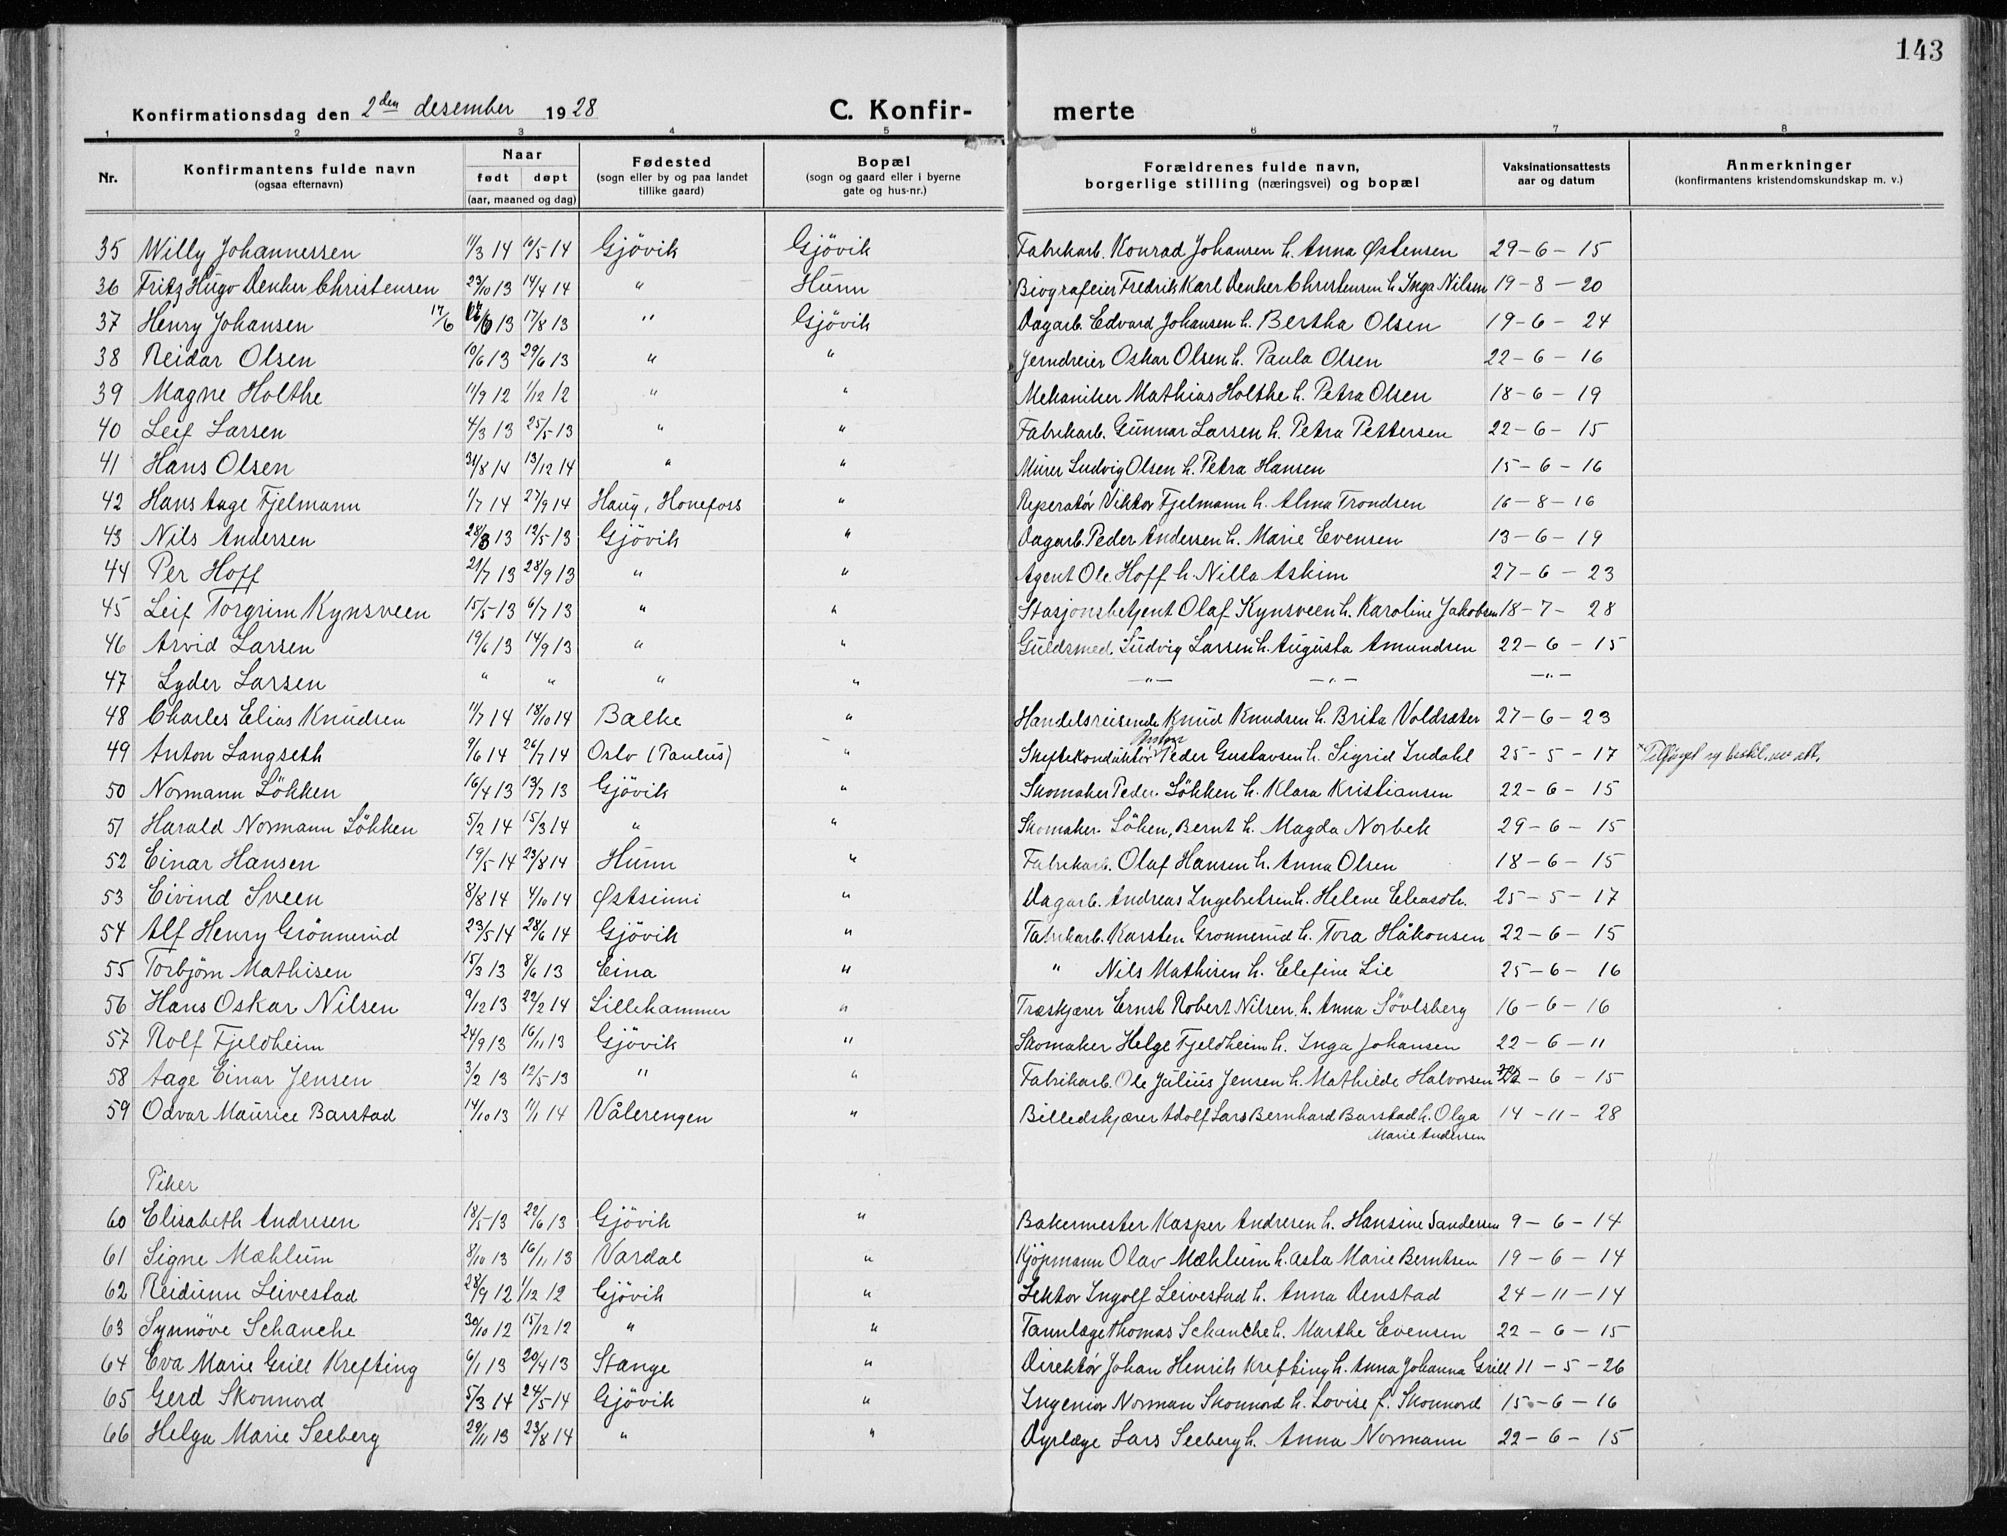 143
Konfirmationsdag den 2den desember 1928 C. Konfir- merte
1 2 3 4 5 6 7 8
Nr. Konfirmantens fulde navn (ogsaa efternavn) Naar født døpt (aar, maaned og dag) Fødested (sogn eller by og paa landet tillike gaard) Bopæl (sogn og gaard eller i byerne gate og hus-nr.) Forældrenes fulde navn, borgerlige stilling (næringsvei) og bopæl Vaksinationsattests aar og datum Anmerkninger (konfirmantens kristendomskundskap m. v.)
35 Willy Johannessen 11/3 14 10/5 14 Gjövik Gjövik Fabrikarb. Konrad Johansen h. Anna Østensen 29-6-15
36 Fritz Hugo Denker Christensen 23/10 13 14/4 14 " Hunn Biografeier Fredrik Karl Denker Christensen h. Inga Nilsen 19-8-20
37 Henry Johansen 17/6 13 17/8 13 " Gjövik Dagarb. Edvard Johansen h. Bertha Olsen 19-6-24
38 Reidar Olsen 10/6 13 29/6 13 " " Jerndreier Oskar Olsen h. Paula Olsen 22-6-16
39 Magne Holthe 11/9 12 1/12 12 " " Mekaniker Mathias Holthe h. Petra Olsen 18-6-19
40 Leif Larsen 4/3 13 25/5-13 " " Fabrikarb. Gunnar Larsen h. Petra Pettersen 22-6-15
41 Hans Olsen 31/8 14 13/12 14 " " Murer Ludvig Olsen h. Petra Hansen 15-6-16
42 Hans Aage Fjelmann 1/7 14 27/9 14 Haug, Honefoss " Reperatør Viktor Fjelmann h. Alma Trondsen 16-8-16
43 Nils Andersen 28/3 13 12/5-13 Gjövik " Dagarb. Peder Andersen h. Marie Evensen 13-6-19
44 Per Hoff 21/7 13 28/9 13 " " Agent Ole Hoff h. Nilla Askim 27-6-23
45 Leif Torgrim Kynsveen 15/5-13 6/7 13 " " Stasjonsbetjent Olaf Kynsveen h. Karoline Jakobsen 18-7-28
46 Arvid Larsen 19/6 13 14/9 13 " " Guldsmed. Ludvig Larsen h. Augusta Amundsen 22-6-15
47 Lyder Larsen " " " " -"- -"- -"-
48 Charles Elias Knudsen 11/7 14 18/10 14 Balke " Handelsreisende Knud Knudsen h. Brita Voldsæter 27-6-23
49 Anton Langseth 9/6 14 26/7 14 Oslo (Paulus) " Skiftekonduktør Peder Gustavsen h. Sigrid Indahl 25-5-17
50 Normann Lökken 16/4 13 13/7 13 Gjövik " Skomaker Peder Lökken h. Klara Kristiansen 22-6-15
51 Harald Normann Lökken 5/2 14 15/3 14 " " Skomaker. Löken, Bernt h. Magda Norbek 29-6-15
52 Einar Hansen 19/5-14 23/8 14 Hunn " Fabrikarb. Olaf Hansen h. Anna Olsen 18-6-15
53 Eivind Sveen 8/8 14 4/10 14 Østsinni " Dagarb. Andreas Ingebretsen h. Helene Eleasdtr. 25-5-17
54 Alf Henry Grönnerud 23/5 14 28/6 14 Gjövik " Fabrikarb. Karsten Gronnerud h. Tora Håkonsen 22-6-15
55 Torbjørn Mathisen 15/3 13 8/6 13 Eina " " Nils Mathisen h. Elefine Lie 25-6-16
56 Hans Oskar Nilsen 9/12 13 22/2 14 Lillehammer " Træskjærer Ernst Robert Nilsen h. Anna Sövlsberg 16-6-16
57 Rolf Fjeldheim 24/9 13 16/11 13 Gjövik " Skomaker Helge Fjeldheim h. Inga Johansen 22-6-11
58 Aage Einar Jensen 3/2 13 12/5-13 " " Fabrikarb. Ole Julius Jensen h. Mathilde Halvorsen 22-6-15
59 Odvar Maurice Barstad 14/10 13 11/1 14 Vålerengen " Billedskjærer Adolf Lars Bernhard Barstad h. Olga Marie Andersen 14-11-28
Piker
60 Elisabeth Andresen 18/5-13 22/6 13 Gjövik " Bakermester Kasper Andresen h. Hansine Sandersen 9-6-14
61 Signe Mæhlum 8/10 13 16/11 13 Vardal " Kjöpmann Olav Mæhlum h. Asta Marie Berntsen 19-6-14
62 Reidunn Leivestad 28/9 12 1/12 12 Gjövik " Lektor Ingolf Leivestad h. Anna Denstad 24-11-14
63 Synnöve Schanche 30/10 12 15/12 12 " " Tannlæge Thomas Schanche h. Marthe Evensen 22-6-15
64 Eva Marie Grill Krefting 6/1 13 20/4 13 Stange " Direktør Johan Henrik Krefting h. Anna Johanna Grill 11-5-26
65 Gerd Skonnord 5/3 14 24/5-14 Gjövik " Ingeniør Norman Skonnord h. Lovise f. Skonnord 15-6-16
66 Helga Marie Seeberg 29/11 13 23/8 14 " " Dyrlæge Lars Seeberg h. Anna Normann 22-6-15